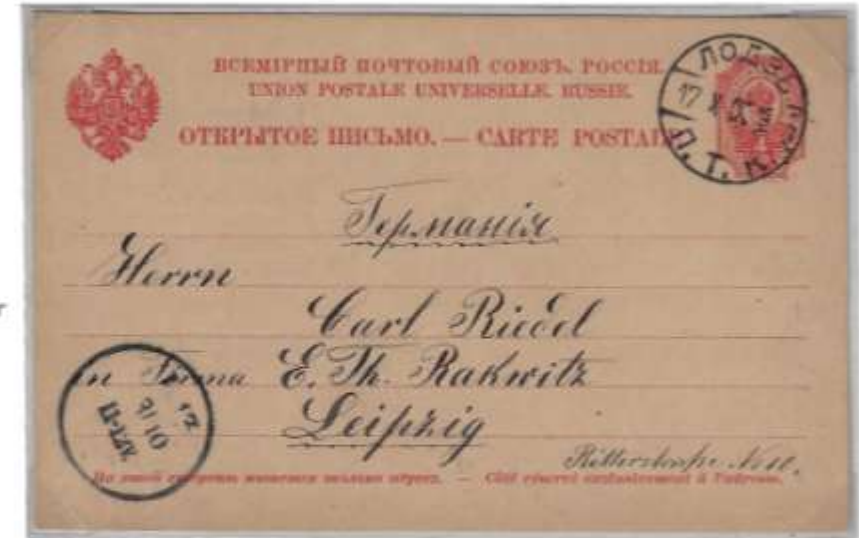 ВСЕМІРНЫЙ ПОЧТОВЫЙ СОЮЗЪ. РОССІЯ.
UNION POSTALE UNIVERSELLE. RUSSIE.
ОТКРЫТОЕ ПИСЬМО. — CARTE POSTALE
ЛОДЗЬ
17 X
П. Т. К.
Германія
Herrn
Carl Riedel
in Firma E. Th. Rakwitz
Leipzig
Ritterstraße No 10.
На этой сторонѣ пишется только адресъ. — Côté réservé exclusivement à l'adresse.